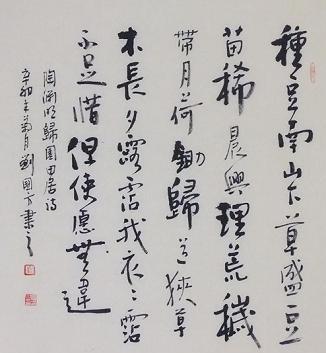 種豆南山下草盛豆
苗稀晨興理荒穢
帶月荷鋤歸道狹草
木長夕露霑我衣〻霑
不足惜但使愿無違
陶淵明歸園田居詩
辛卯年菊月劉國方書